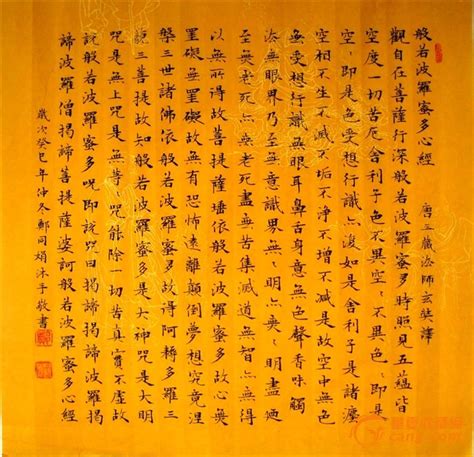 般若波羅蜜多心經　唐三藏法師玄奘譯
觀自在菩薩行深般若波羅蜜多時照見五蘊皆
空度一切苦厄舍利子色不異空々不異色々即是
空々即是色受想行識亦復如是舍利子是諸法
空相不生不滅不垢不淨不增不減是故空中無色
無受想行識無眼耳鼻舌身意無色聲香味觸
法無眼界乃至無意識界無々明亦無々明盡乃
至無老死亦無老死盡無苦集滅道無智亦無得
以無所得故菩提薩埵依般若波羅蜜多故心無
罣礙無罣礙故無有恐怖遠離顛倒夢想究竟涅
槃三世諸佛依般若波羅蜜多故得阿耨多羅三
藐三菩提故知般若波羅蜜多是大神咒是大明
咒是無上咒是無等々咒能除一切苦真實不虛故
說般若波羅蜜多咒即說咒曰揭諦揭諦波羅揭
諦波羅僧揭諦菩提薩婆訶般若波羅蜜多心經
歲次癸巳年仲冬鄭同娟沐手敬書